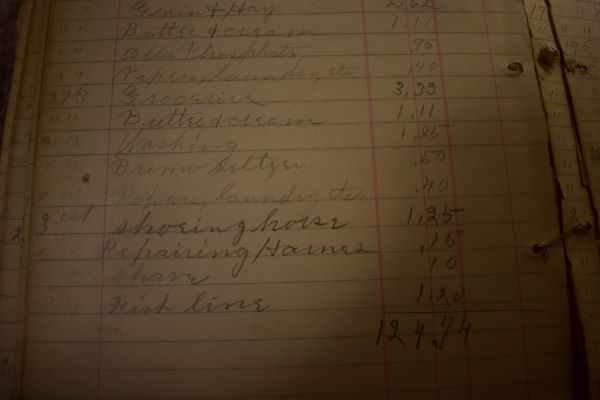 " " Grain & Hay 2,62
" " Butter & cream 1.11
" " 50 lbs Phosphate .75
" " Papers, laundry etc .40
27th Groceries 3,39
" " Butter & cream 1.11
" " Washing 1,25
" " Bromo Seltzer .50
" " Papers, laundry etc .40
31st shoeing horse 1,25
" Repairing Harnes .15
shave 10
" " Fish line 1.20
124.74